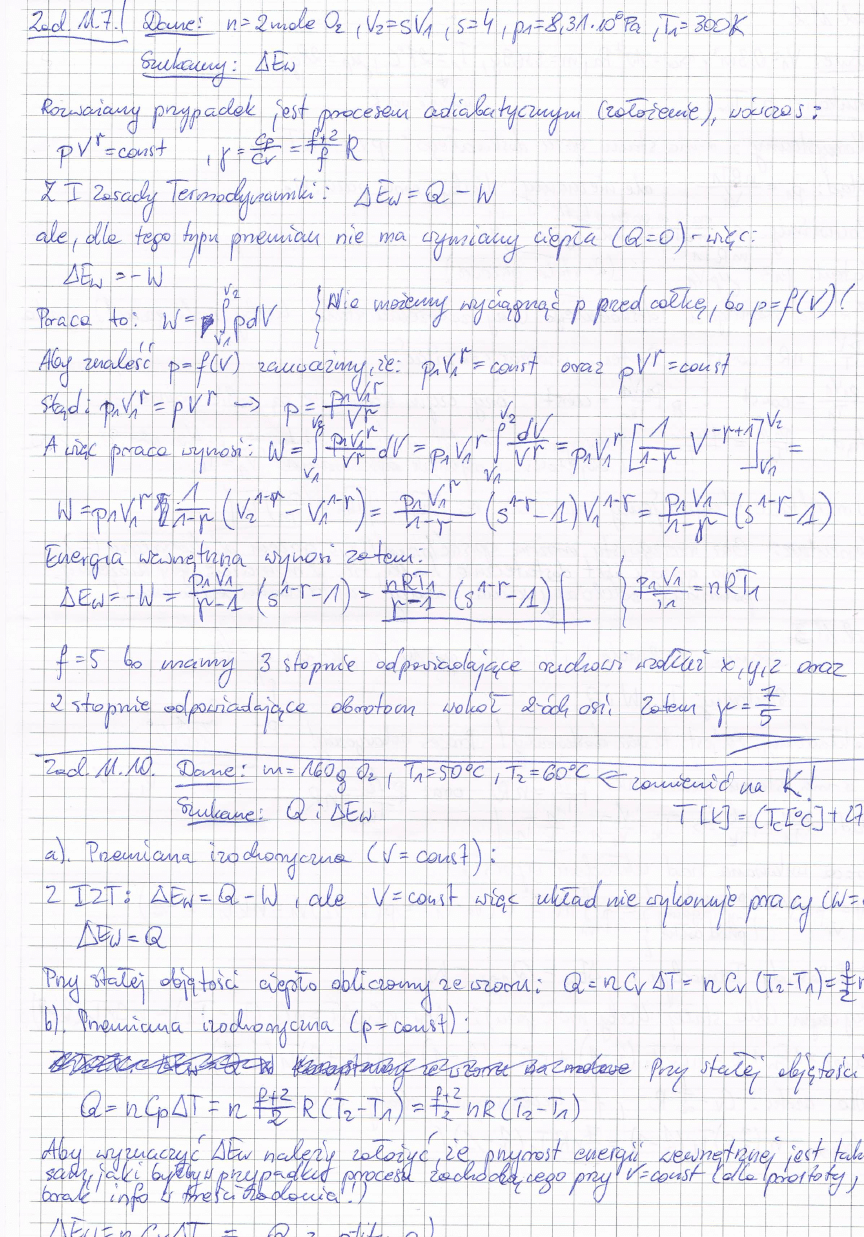 Zad. 11.7. Dane: n=2mole O₂, V₂=sV₁, s=4, p₁=8,31·10⁶Pa, T₁=300K
Szukamy: ΔEw
Rozważany przypadek jest procesem adiabatycznym (założenie), wówczas:
pVʳ=const , γ=cp/cv = (f+2)/f R
Z I zasady Termodynamiki: ΔEw = Q − W
ale, dla tego typu przemian nie ma wymiany ciepła (Q=0) - więc:
ΔEw = −W
Praca to: W = ∫_{V₁}^{V₂} pdV } Nie możemy wyciągnąć p przed całkę, bo p=f(V)!
Aby znaleść p=f(V) zauważmy, że: p₁V₁ʳ=const oraz pVʳ=const
Stąd: p₁V₁ʳ = pVʳ → p = p₁V₁ʳ/Vʳ
A więc praca wynosi: W = ∫_{V₁}^{V₂} p₁V₁ʳ/Vʳ dV = p₁V₁ʳ ∫_{V₁}^{V₂} dV/Vʳ = p₁V₁ʳ [1/(1-r) V^{-r+1}]_{V₁}^{V₂} =
W = p₁V₁ʳ 1/(1-r) (V₂^{1-r} − V₁^{1-r}) = p₁V₁ʳ/(1-r) (s^{1-r} − 1) V₁^{1-r} = p₁V₁/(1-γ) (s^{1-r} − 1)
Energia wewnętrzna wynosi zatem:
ΔEw = −W = p₁V₁/(γ-1) (s^{1-r} − 1) = nRT₁/(γ-1) (s^{1-r} − 1) } p₁V₁/T₁ = nRT₁
f=5 bo mamy 3 stopnie odpowiadające ruchowi wzdłuż x,y,z oraz
2 stopnie odpowiadające obrotom wokół 2-óch osi. Zatem γ = 7/5
Zad. 11.10. Dane: m=160g O₂, T₁=50°C, T₂=60°C ← zamienić na K!
Szukane: Q i ΔEw T[K] = (Tc[°C] + 27
a). Przemiana izochoryczna (V=const):
Z IZT: ΔEw = Q − W, ale V=const więc układ nie wykonuje pracy (W=
ΔEw = Q
Przy stałej objętości ciepło obliczamy ze wzoru: Q = nCvΔT = nCv(T₂-T₁) = f/2 n
b). Przemiana izochoryczna (p=const):
Przy stałej objętości
Q = nCpΔT = n (f+2)/2 R(T₂-T₁) = (f+2)/2 nR(T₂-T₁)
Aby wyznaczyć ΔEw należy założyć, że przyrost energii wewnętrznej jest tak
sam, jaki byłby w przypadku procesu zachodzącego przy V=const (dla prostoty,
brak info w treści zadania!)
ΔEw = nCvΔT = Q z